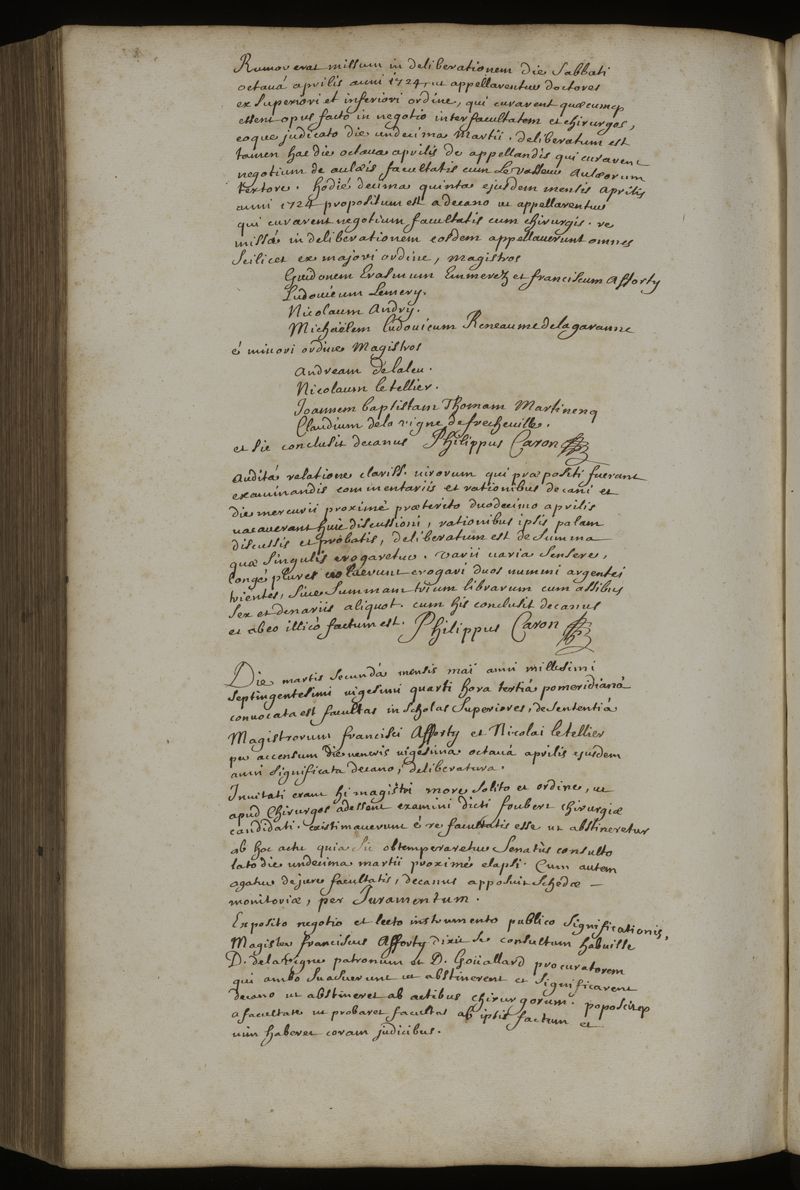 Rumor erat missum in deliberationem die Sabbati
octavâ aprilis anni 1724, ut appellarentur doctores
ex superiori et inferiori ordine, qui curarent quæcumq
essent opus facto in negotio inter facultatem et chirurgos,
eoque judicato die undecima Martii. deliberatum est
tamen hac die octava aprilis de appellandis qui curarent
negotium de aulæis facultatis cum Le Vasseur Aulæorum
textore. hodie decima quinta ejusdem mensis aprilis
anni 1724 propositum est a decano ut appellarentur
qui curarent negotium facultatis cum chirurgis. re
missâ in deliberationem eosdem appellaverunt omnes
scilicet ex majori ordine, magistros
Guidonem Erasmum Emmerez et franciscum Afforty
Ludovicum Lemery.
Nicolaum Andry.
Michaëlem Ludovicum Reneaume de la garanne
é minori ordine Magistros
Andream de laleu.
Nicolaum le tellier.
Joannem baptistam Thomam Martinenq
Claudium de la vigne de frecheville.
et sic conclusit decanus Philippus Caron
Auditâ relatione clariss. virorum qui præpositi fuerant
examinandis commentariis et rationibus decani et
die mercurii proximé præterito duodecimo aprilis
vacaverant huic discussioni, rationibus ipsis palam
discussis et probatis, deliberatum est de summa
quæ singulis erogaretur. varii varia sensere,
longé plures voluerunt erogari duos nummi argentei
trientes, sive summam trium librarum cum assibus
sex et denariis aliquot. cum his conclusit decanus
et ab eo illicò factum est. Philippus Caron
Die martis secundâ mensis maï anni millesimi
septingentesimi vigesimi quarti hora tertiâ pomeridianâ
convocata est facultas in scholas superiores, de sententiâ
Magistrorum francisci Afforty et Nicolai le tellier
per accensum die veneris vigesima octavâ aprilis ejusdem
anni significata decano, deliberatura.
Invitati erant hi magistri more solito et ordine, ut
apud Chirurgos adessent examini dicti foubert chirurgiæ
candidati. existimaverunt é re facultatis esse ut abstineretur
ab hoc actu quia sic obtemperaretur Senatûs consulto
lato die undecima martii proximé elapsi. Cum autem
agatur de jure facultatis, decanus apposuit schedæ –
monitoriæ, per Juramentum.
Exposito negotio et lecto instrumento publico significationis,
Magister franciscus Afforty dixit se consultum habuisse
D. de la Vigne patronum et D. Goüallard procuratorem
qui ambo suaserunt ut abstinerent et significarent
decano ut abstineret ab actibus chirurgorum. poposcitq
a facultate ut probaret facultas ab ipsis factum et
vim haberet coram judicibus.